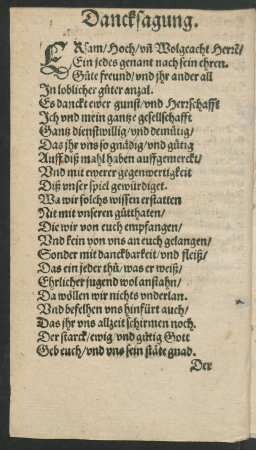 Dancksagung.
ERsam/ Hoch/ vñ Wolgeacht Herrẽ/
Ein jedes genant nach sein ehren.
Gůte freund/ vnd jhr ander all
In loblicher gůter anzal.
Es danckt ewer gunst/ vnd Herrschafft
Ich vnd mein gantze gesellschafft
Gantz dienstwillig/ vnd demütig/
Das jhr vns so gnädig/ vnd gütig
Auff diß mahl haben auffgemerckt/
Vnd mit ewerer gegenwertigkeit
Diß vnser spiel gewürdiget.
Wa wir solchs wissen erstatten
Nit mit vnseren gůtthaten/
Die wir von euch empfangen/
Vnd kein von vns an euch gelangen/
Sonder mit danckbarkeit/ vnd fleiß/
Das ein jeder thů/ was er weiß/
Ehrlicher jugend wol anstahn/
Da wöllen wir nichts vnderlan.
Vnd befelhen vns hinfürt auch/
Das jhr vns allzeit schirmen noch.
Der starck/ ewig/ vnd gütig Gott
Geb euch/ vnd vns sein stäte gnad.
Der